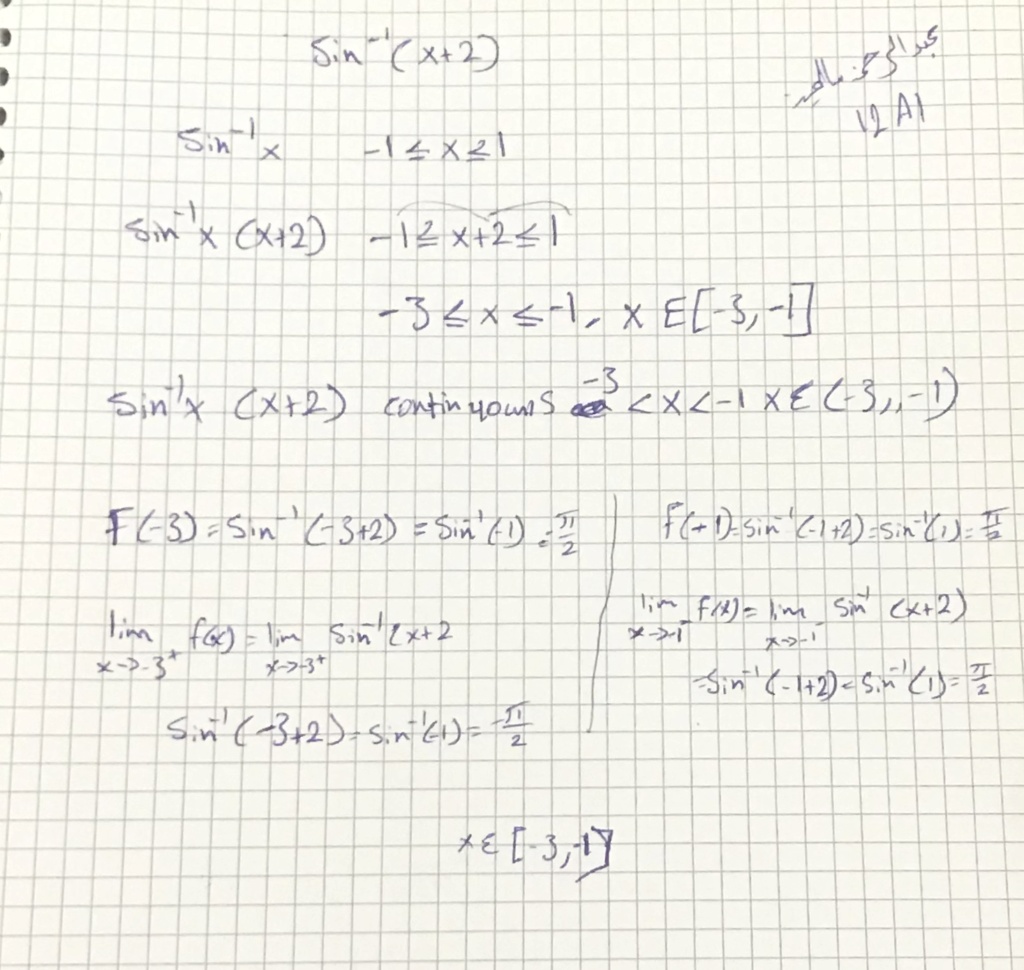 sin⁻¹(x+2)
12 A1
sin⁻¹x -1 ≤ x ≤ 1
sin⁻¹x (x+2) -1 ≤ x+2 ≤ 1
-3 ≤ x ≤ -1, x ∈ [-3, -1]
sin⁻¹x (x+2) continuouns -3 < x < -1 x ∈ (-3,,-1)
F(-3) = sin⁻¹(-3+2) = sin⁻¹(-1) = -π/2
lim x→-3⁺ f(x) = lim x→-3⁺ sin⁻¹(x+2
sin⁻¹(-3+2) = sin⁻¹(-1) = -π/2
F(-1) = sin⁻¹(-1+2) = sin⁻¹(1) = π/2
lim x→-1⁻ f(x) = lim x→-1⁻ sin⁻¹ (x+2)
= sin⁻¹(-1+2) = sin⁻¹(1) = π/2
x ∈ [-3, -1]